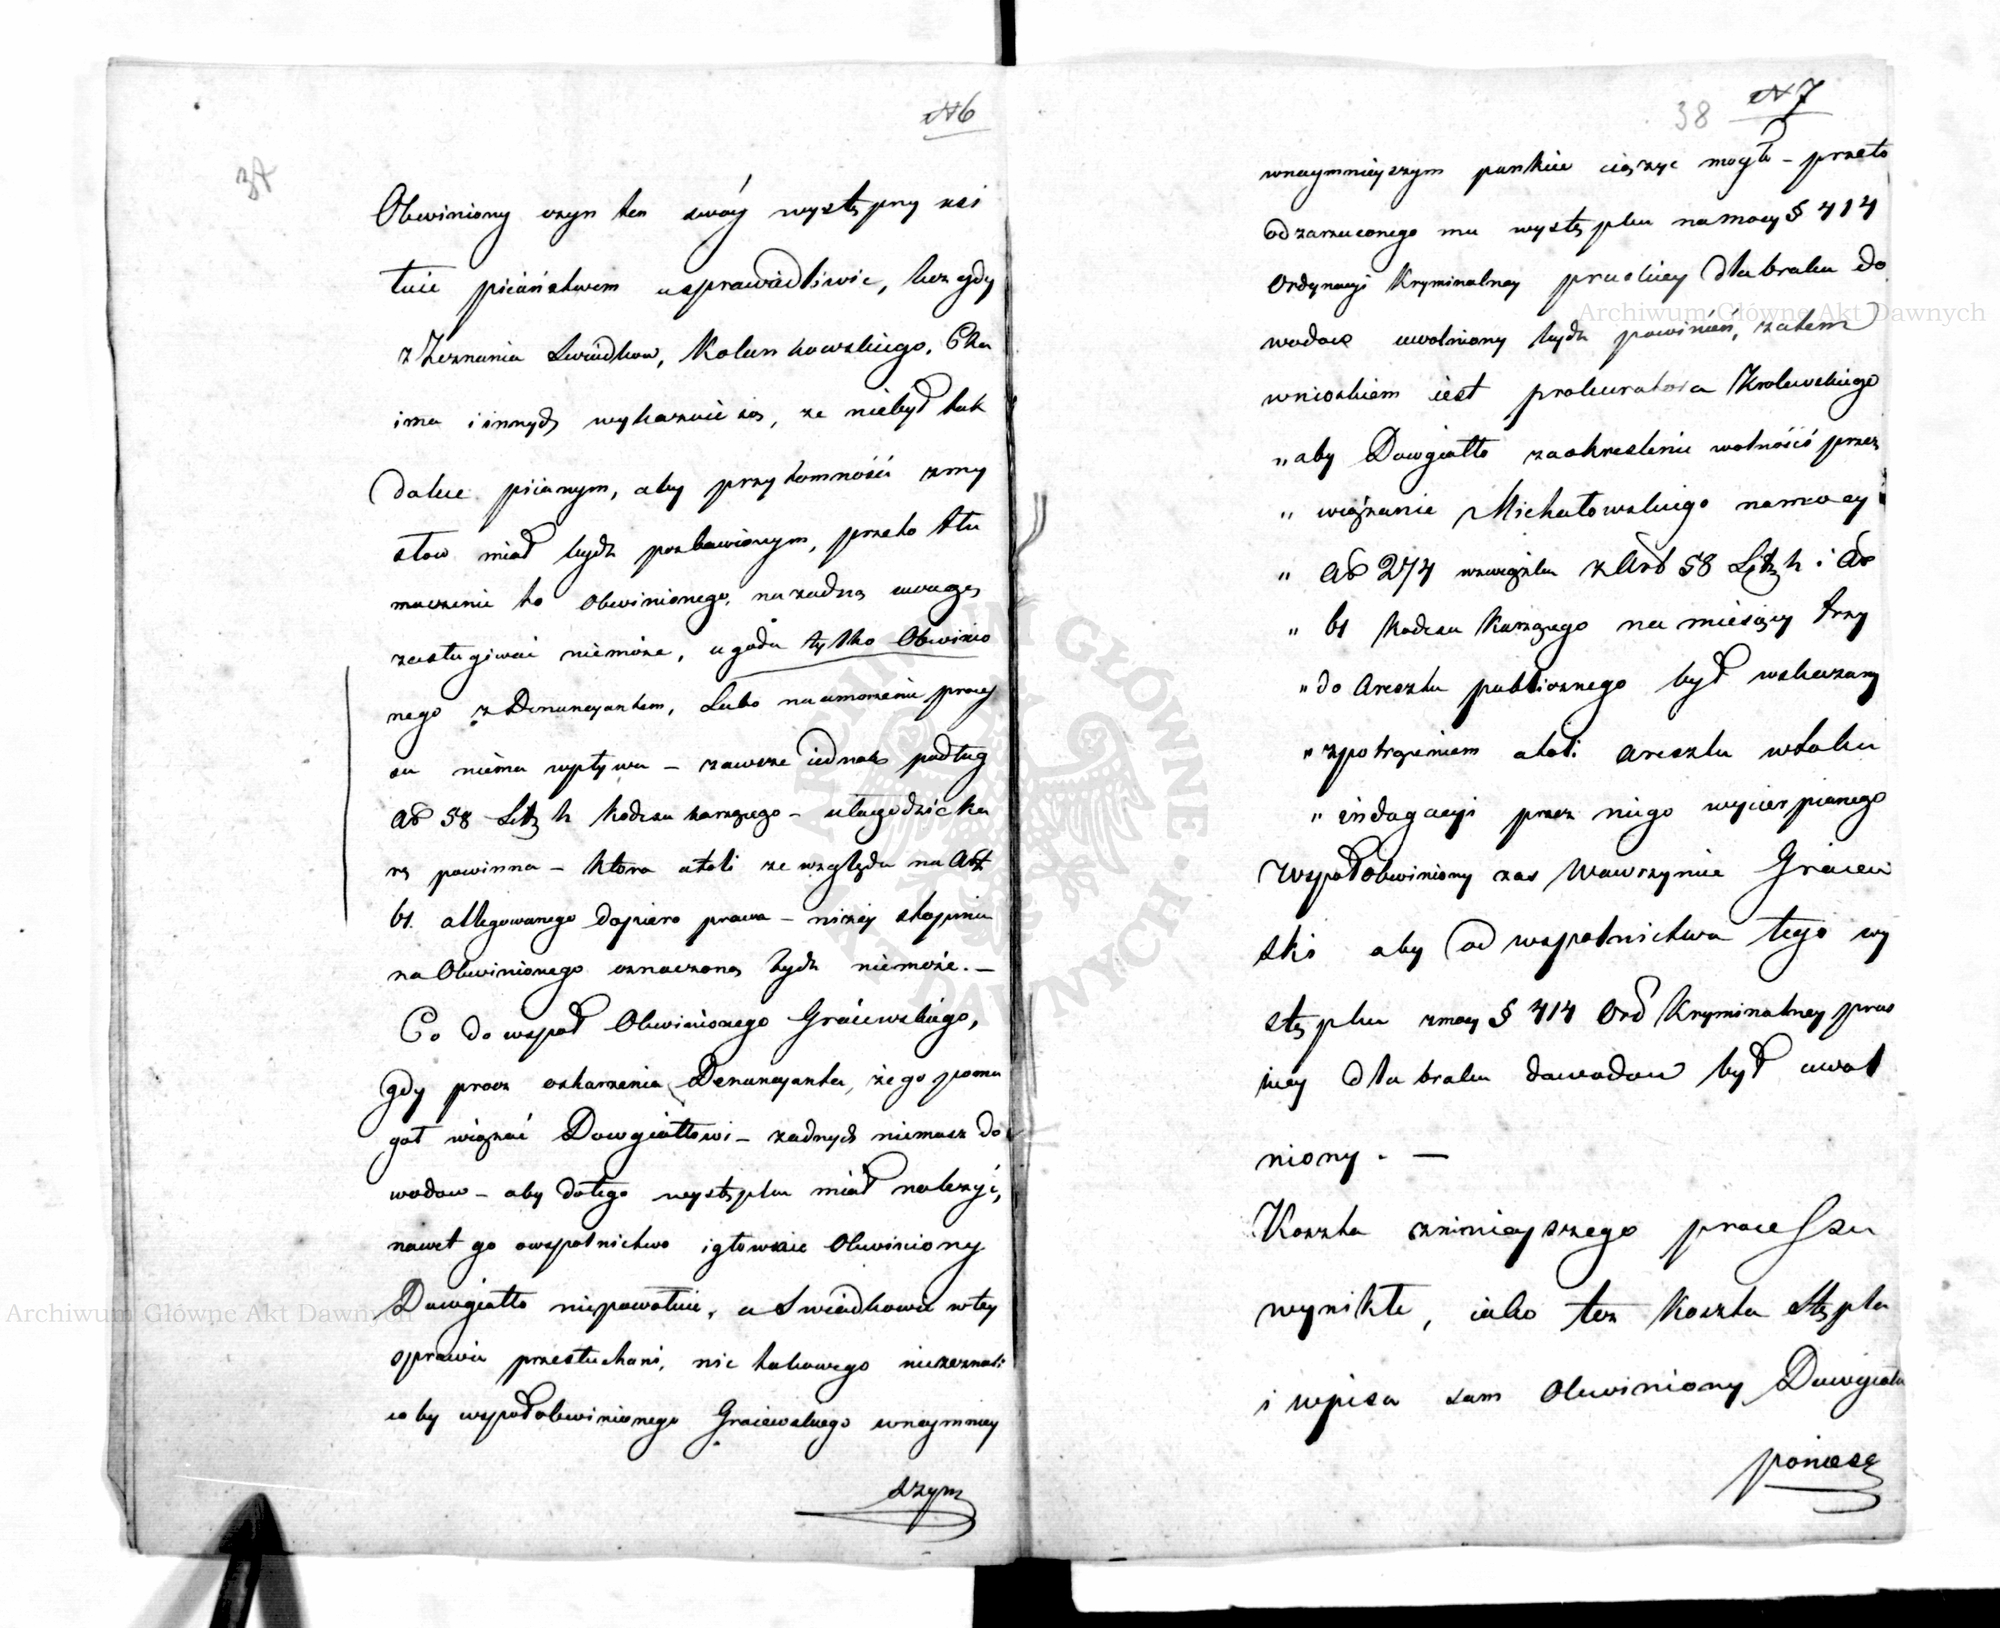 N 6
37
Obwiniony czyn ten swóy występny usi
łuie piiaństwem usprawiedliwić, lecz gdy
z Zeznania Swiadków, Kalinkowskiego,
ima i innych wykazuie się, że niebył tak
dalece piianym, aby przytomności zmy
słow miał bydź pozbawionym, przeto tłu
maczenie to Obwinionego, na żadną uwagę
zasługiwać niemoże, ugoda tylko Obwinio
nego z Denuncyantem, Lubo na umorzenie proces
su niema wpływu – zawsze iednak podług
Art 58 Litt h Kodexu karzącego – ułagodzić ka
rę powinna – która atoli ze względu na Art
61. allegowanego dopiero prawa – niżey stopnia
na Obwinionego oznaczoną bydź niemoże. –
Co do wspoł Obwinionego Graiewskiego,
gdy procz oskarzenia Denuncyanta, że go poma
gał wiązać Dowgiałłowi – żadnych niemasz do
wodow – aby do tego występku miał należyć,
nawet go o wspolnictwo i głowne Obwiniony
Dowgiałło niepowołuie, a Swiadkowie w tey
sprawie przesłuchani, nic takowego niezeznali
coby wspołobwinionego Graiewskiego w naymniey
szym
38 N 7
w naymnieyszym punkcie ciążyć mogło – przeto
od zarzuconego mu występku na mocy § 414
Ordynacyi Kryminalney pruskiey dla braku do
wodow uwolniony bydź powinien, zatem
wnioskiem iest prokuratora Krolewskiego
„ aby Dowgiałło za okreslenie wolności przez
„ wiązanie Michałowskiego na mocy
„ Art 274 w związku z Art 58 Litt h i Art
„ 61 Kodexu Karzącego na miesięcy trzy
„ do Aresztu publicznego był wskazany
„ z potrąceniem atoli aresztu w toku
„ indagacyi przez niego wycierpianego
Wspołobwiniony zas Wawrzyniec Graiew
ski aby od wspolnictwa tego wy
stępku z mocy § 414 Ord Kryminalney prus
kiey dla braku dowodow był uwol
niony. –
Koszta z ninieyszego processu
wynikłe, iako tez Koszta Stępla
i wpisu sam Obwiniony Dowgiałło
poniesie
Archiwum Główne Akt Dawnych
Archiwum Główne Akt Dawnych
ARCHIWUM GŁÓWNE AKT DAWNYCH